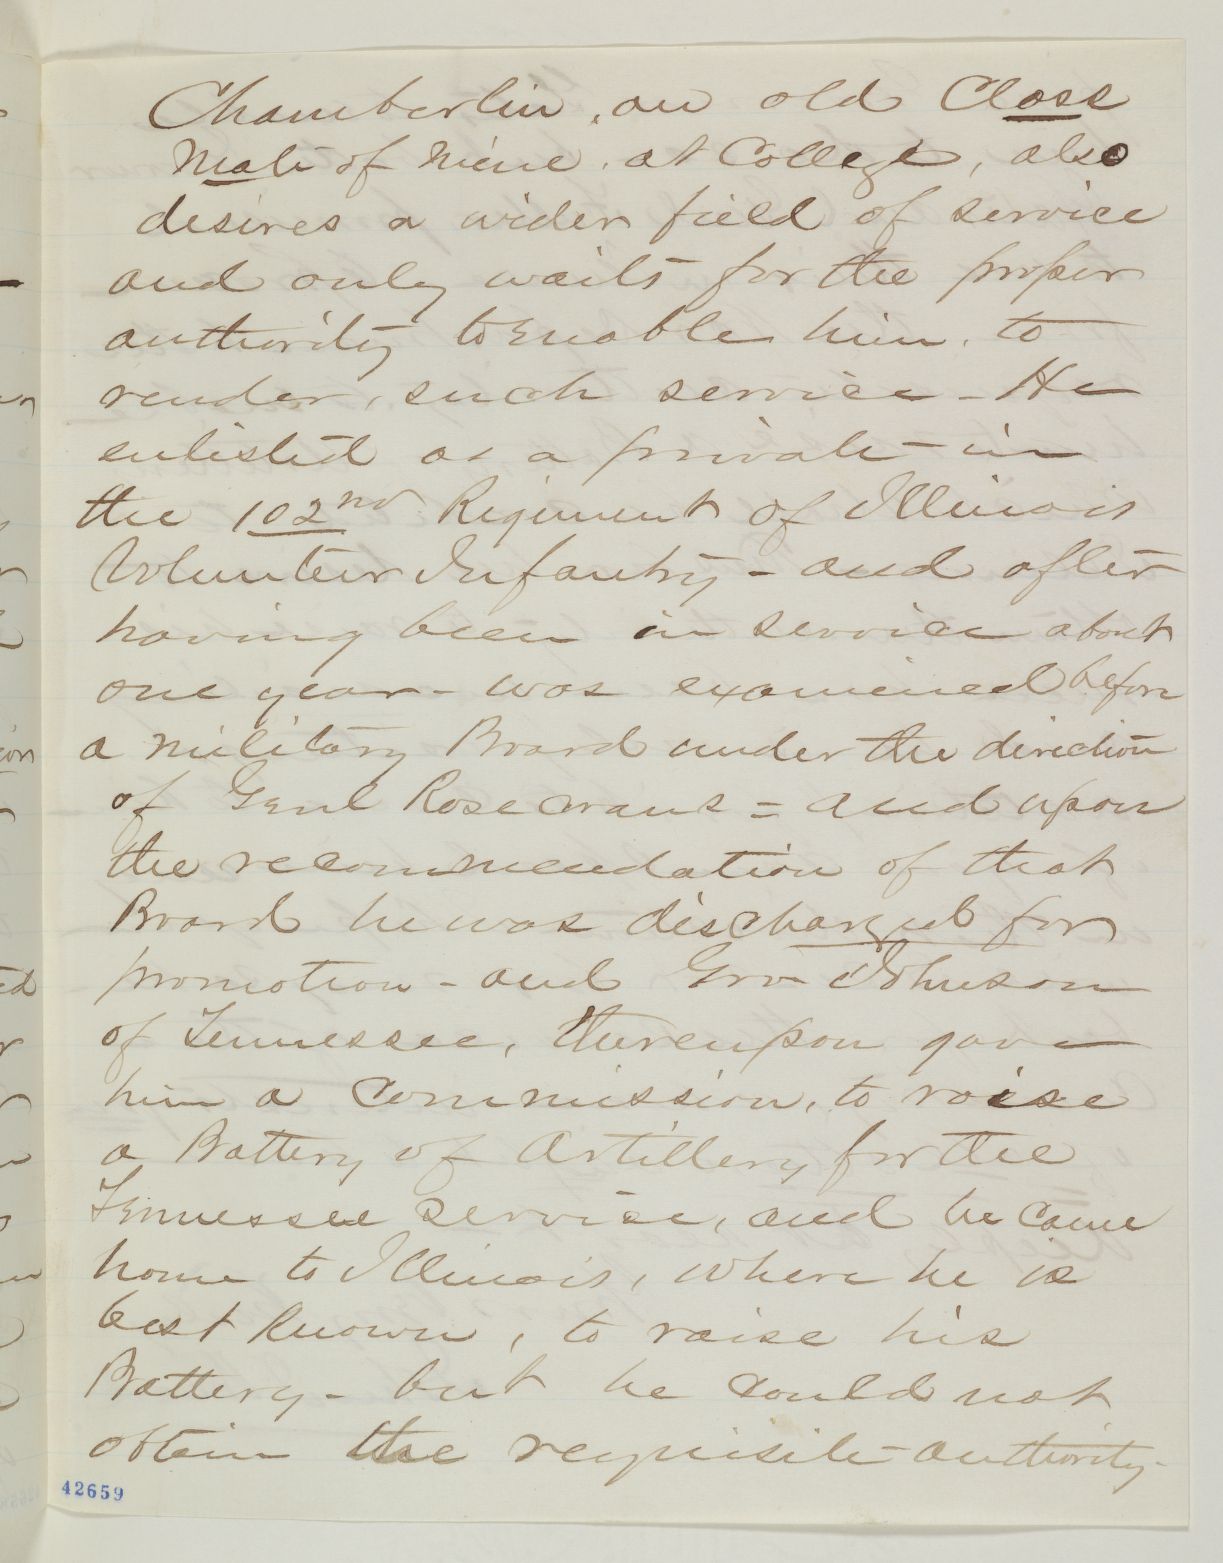 Chamberlin, an old Class
Mate of mine, at College, also
desires a wider field of service
and only waits for the proper
authority to enable him, to
render, such service - He
enlisted as a private - in
the 102nd Regiment of Illinois
Volunteer Infantry - and after
having been in service about
one year - was examined before
a military Board under the direction
of Genl Rosecrans = and upon
the recommendation of that
Board he was discharged for
promotion - and Gov Johnson
of Tennessee, thereupon gave
him a commission, to raise
a Battery of Artillery for the
Tennessee service, and he came
home to Illinois, where he is
best known, to raise his
Battery - but he could not
obtain the requisite authority -
42659